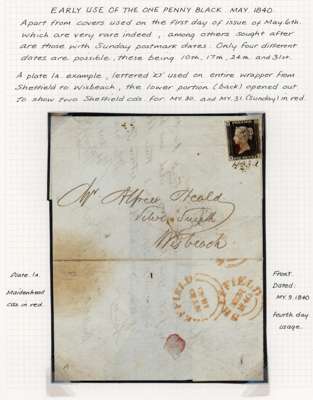 EARLY USE OF THE ONE PENNY BLACK MAY. 1840.
Apart from covers used on the first day of issue of May.6th.
which are very rare indeed, among others sought after
are those with Sunday postmark dates. Only four different
dates are possible, these being 10th, 17th, 24th and 31st.
A plate 1a example, lettered used on entire wrapper from
Sheffield to Wisbeach, the lower portion (back) opened out
to show two Sheffield cds. for MY.30. and MY.31 (Sunday) in red.
Mr Alfred Heald
Silver Smith
Wisbeach
Plate 1a.
Maidenhead
cds in red.
Front.
Dated:
MY.9.1840
fourth day
usage.
SHEFFIELD
SHEFFIELD